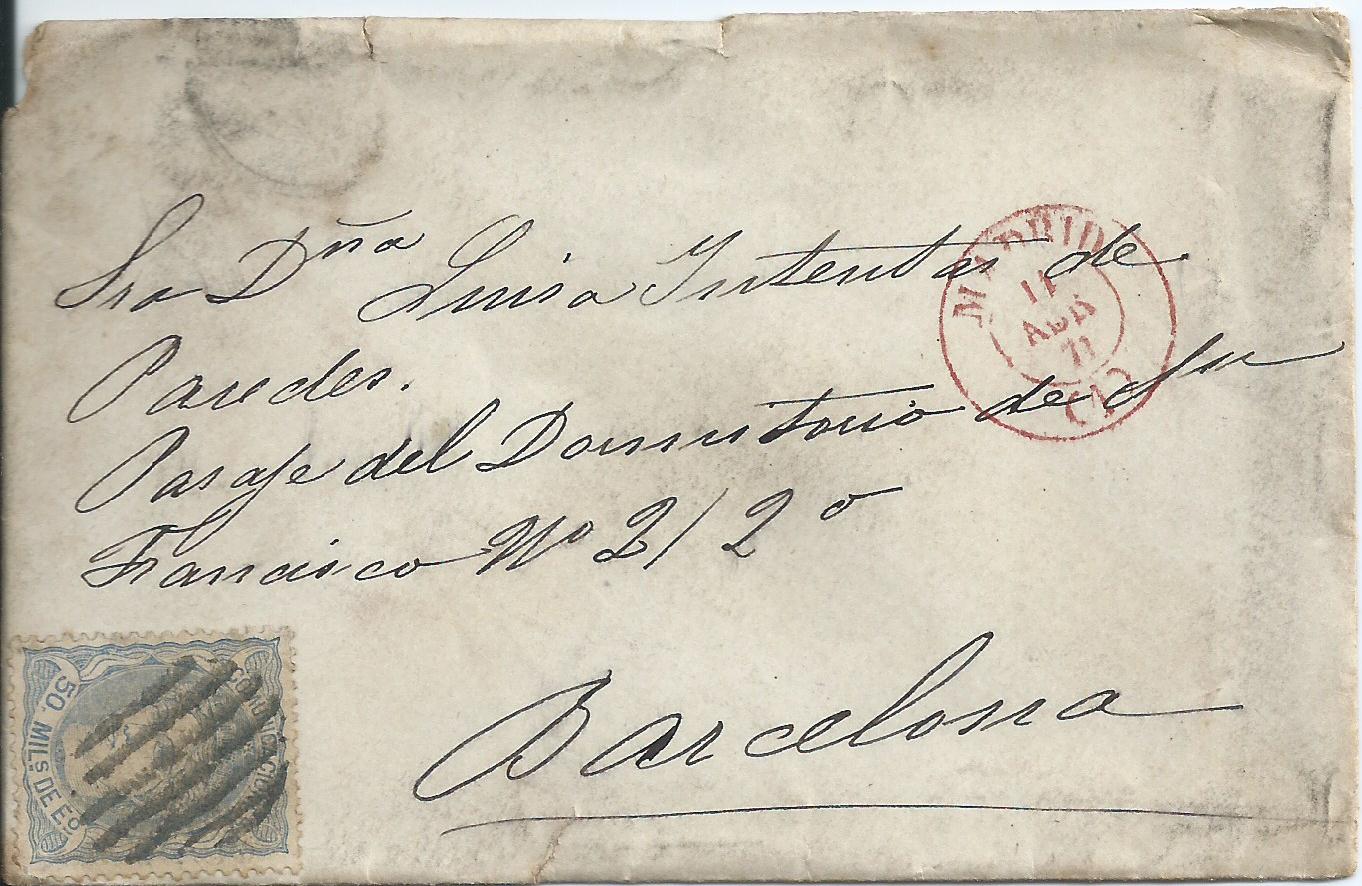 Sra Dña Luisa Intentas de
Paredes.
Pasaje del Dormitorio de Sn
Francisco Nº 2/2º
Barcelona
MADRID
11
ABR
71
50. MILS DE Eº
COMUNICACIONES